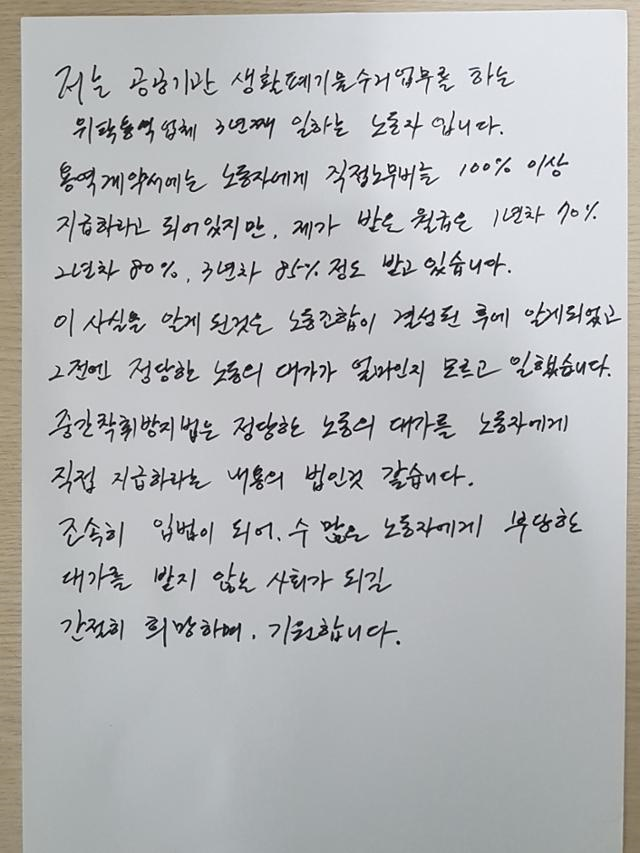 저는 공공기관 생활폐기물수거업무를 하는
위탁용역업체 3년째 일하는 노동자 입니다.
용역계약서에는 노동자에게 직접노무비는 100% 이상
지급하라고 되어있지만, 제가 받은 월급은 1년차 70%
2년차 80%, 3년차 85% 정도 받고 있습니다.
이 사실을 알게 된것은 노동조합이 결성된 후에 알게되었고
그전엔 정당한 노동의 대가가 얼마인지 모르고 일했습니다.
중간착취방지법은 정당한 노동의 대가를 노동자에게
직접 지급하라는 내용의 법인것 같습니다.
조속히 입법이 되어, 수 많은 노동자에게 부당한
대가를 받지 않는 사회가 되길
간절히 희망하며, 기원합니다.